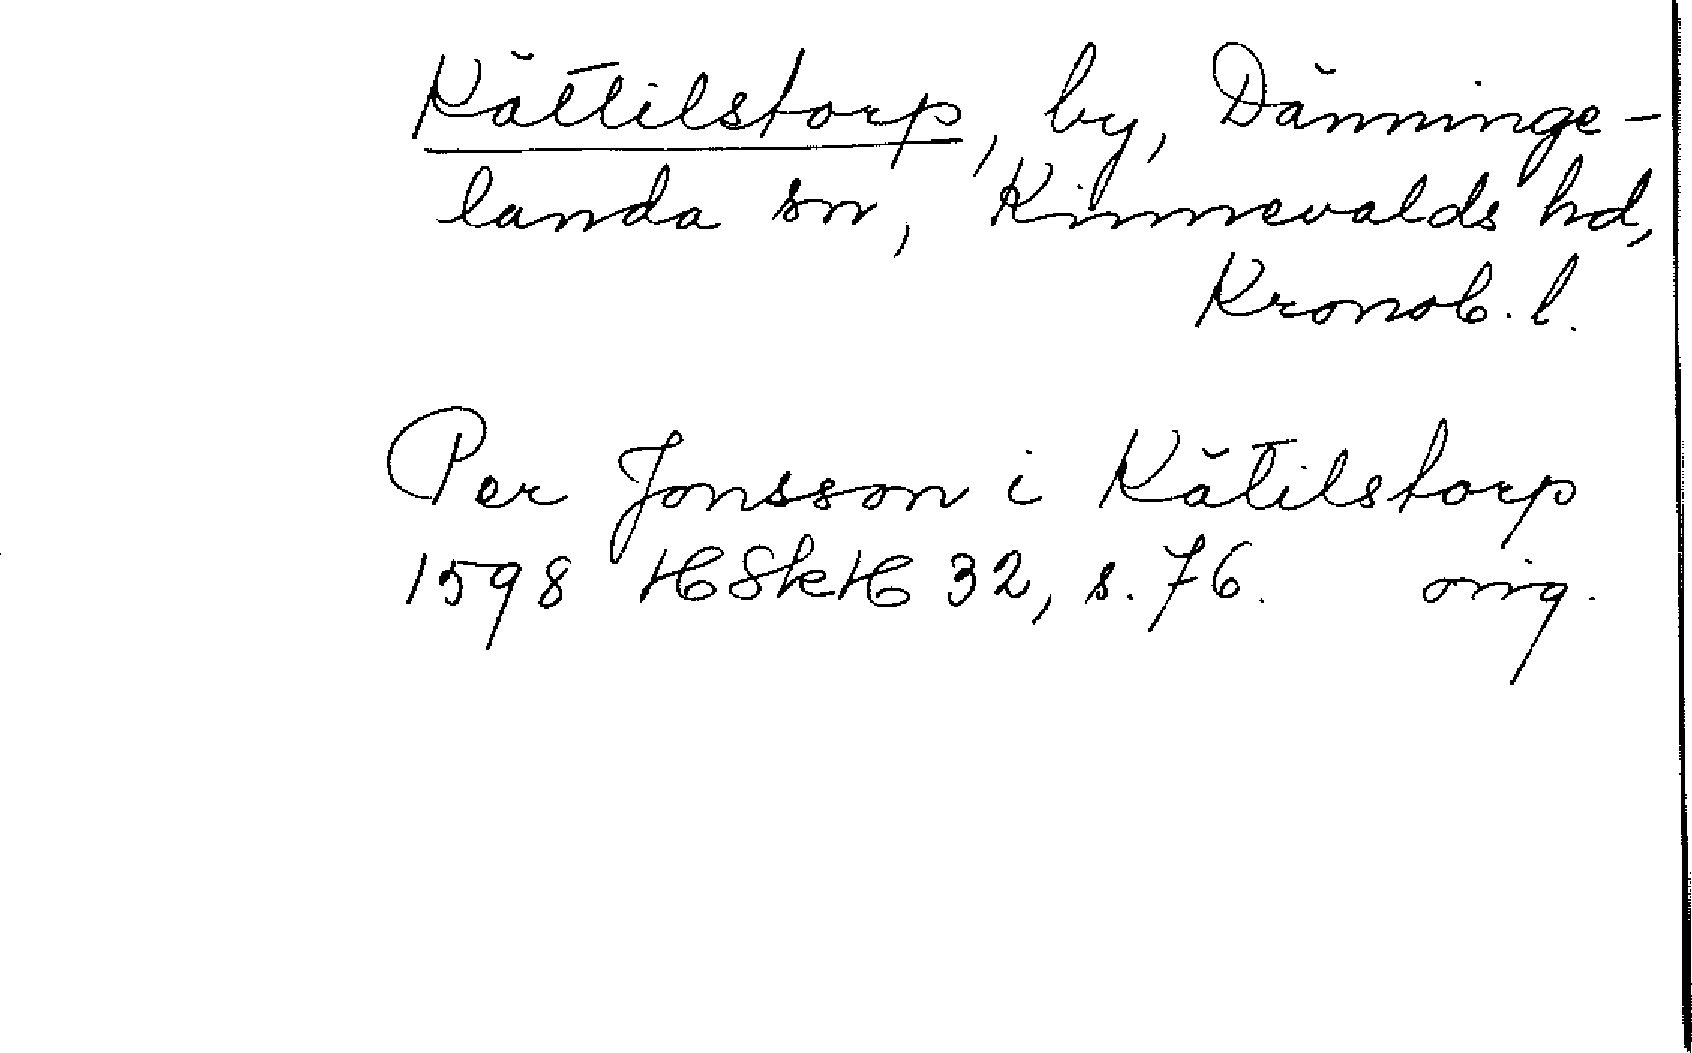 Kättilstorp, by, Dänninge-
landa sn, Kinnevalds hd,
Kronob. l.
Per Jonsson i Kätilstorp
1598 HSkH 32, s. 76. orig.